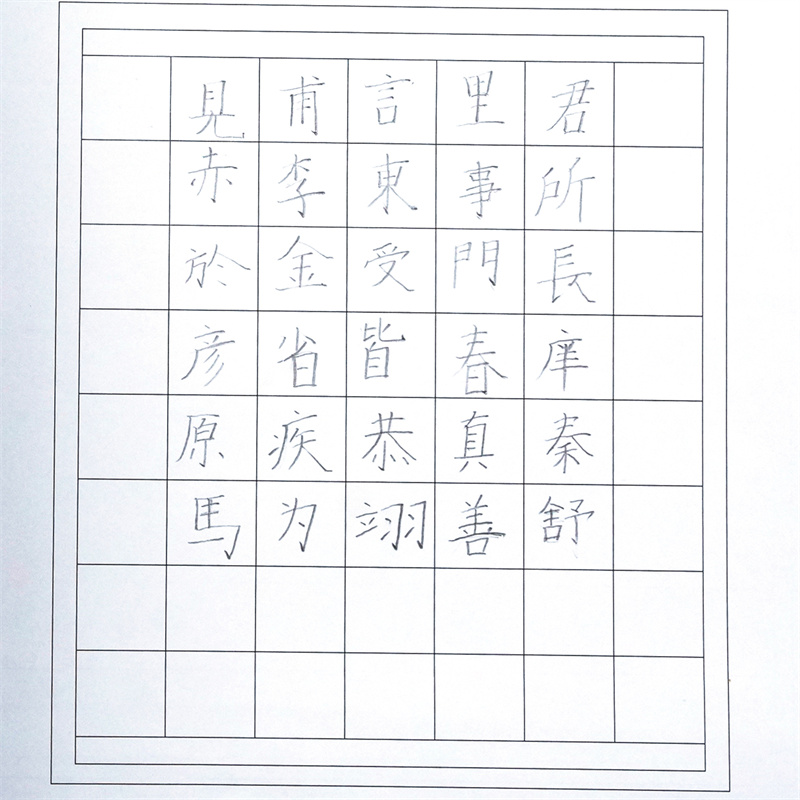 君所長庠秦舒
里事門春真善
言東受皆恭翊
甫李金省疾为
見赤於彦原馬